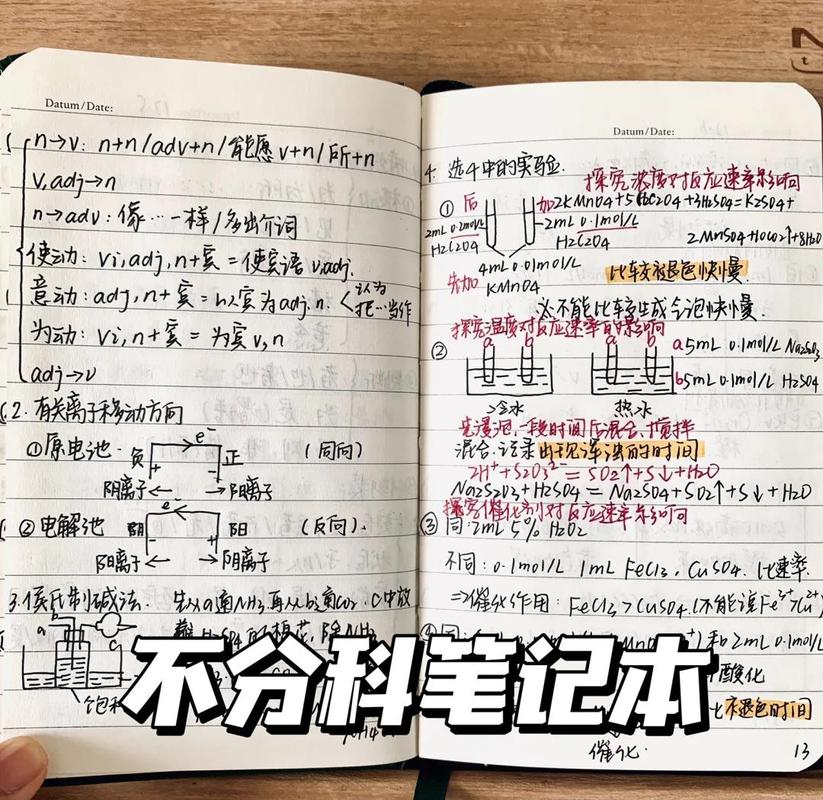 Datum/Date:
n→v: n+n/adv+n/能愿v+n/所+n
v,adj→n
n→adv: 像…一样/多出介词
使动: vi,adj,n+宾=使宾语v,adj.
意动: adj,n+宾=以宾为adj.n. 认为 把…当作
为动: vi,n+宾=为宾v,n
adj→v
2. 有关离子移动方向
①原电池. 负 e⁻ 正 (同向)
阴离子← →阳离子
②电解池 阴 e⁻ 阳 (反向).
阳离子← →阴离子
3. 侯氏制碱法. 先从a通NH3再从b通CO2. C中放
a b c
不分科笔记本
Datum/Date:
4. 选4中的实验.
探究浓度对反应速率影响
① 后 加 2KMnO4+5H2C2O4+3H2SO4=K2SO4+
2MnSO4+10CO2↑+8H2O
2mL 0.2mol/L H2C2O4
2mL 0.1mol/L H2C2O4
先加 4mL 0.01mol/L KMnO4
比较褪色快慢.
※不能比较生成气泡快慢.
探究温度对反应速率的影响
② a b a b a 5mL 0.1mol/L Na2S2O3
b 5mL 0.1mol/L H2SO4
冷水 热水
先浸泡一段时间后混合、搅拌
混合.记录出现浑浊的时间
2H⁺+S2O3²⁻=SO2↑+S↓+H2O
Na2S2O3+H2SO4=Na2SO4+SO2↑+S↓+H2O
探究催化剂对反应速率影响
③同: 2mL 5% H2O2
不同: 0.1mol/L 1mL FeCl3, CuSO4. 比速率
⇒催化作用: FeCl3>CuSO4.(不能说Fe³⁺>Cu²⁺)
和2mL 0.1mol/L
酸化
比褪色时间
催化.
13